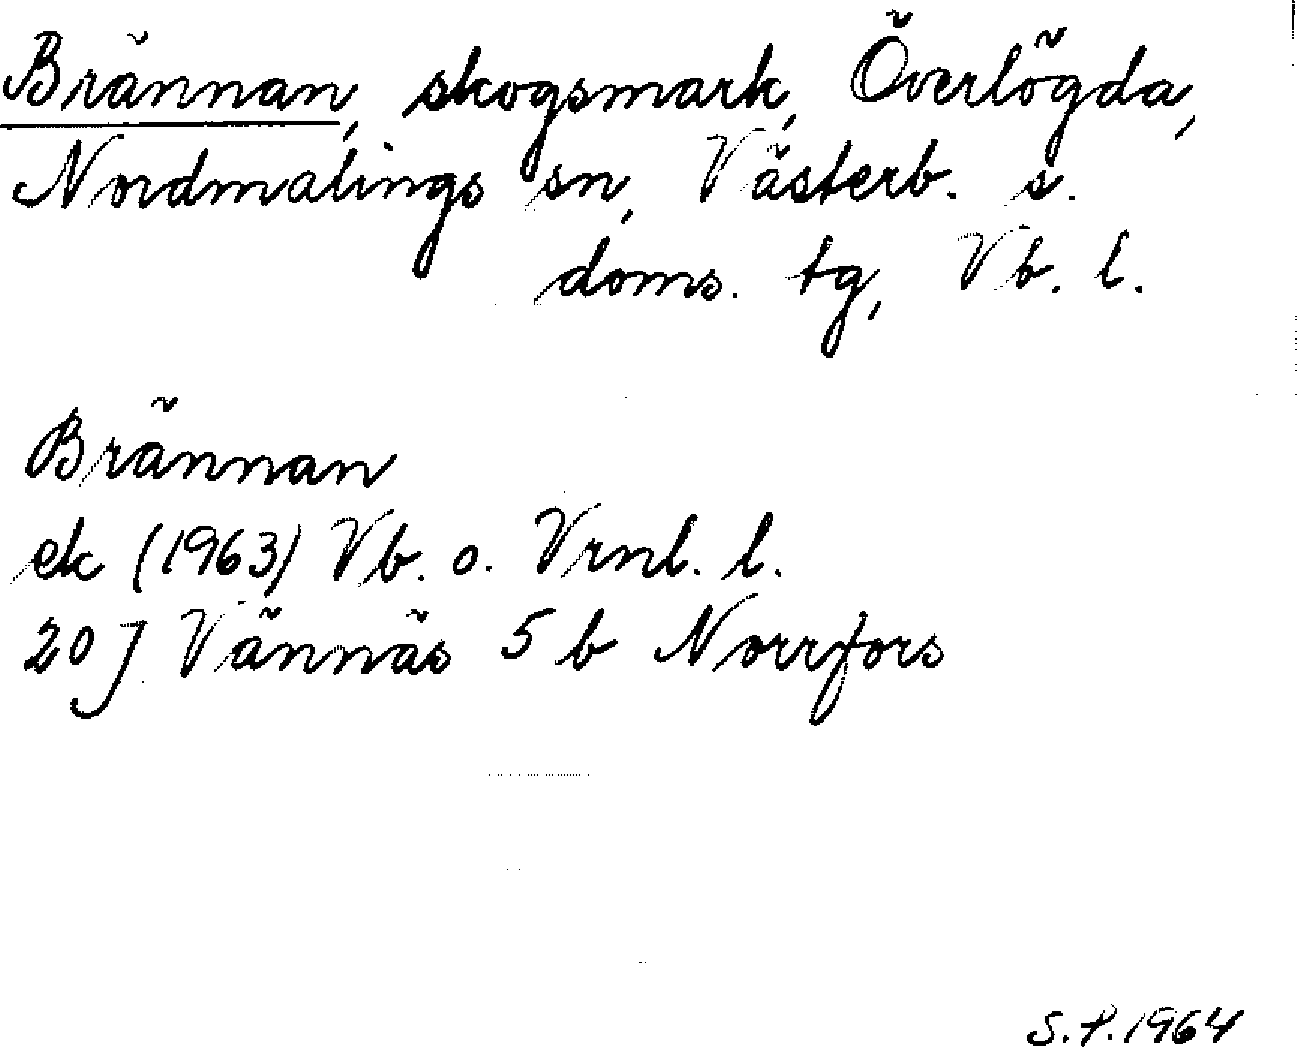 Brännan, skogsmark, Överlögda,
Nordmalings sn, Västerb. s.
doms. tg, Vb. l.
Brännan
ek (1963) Vb. o. Vrnl. l.
20 J Vännäs 5 b Norrfors
S.P. 1964